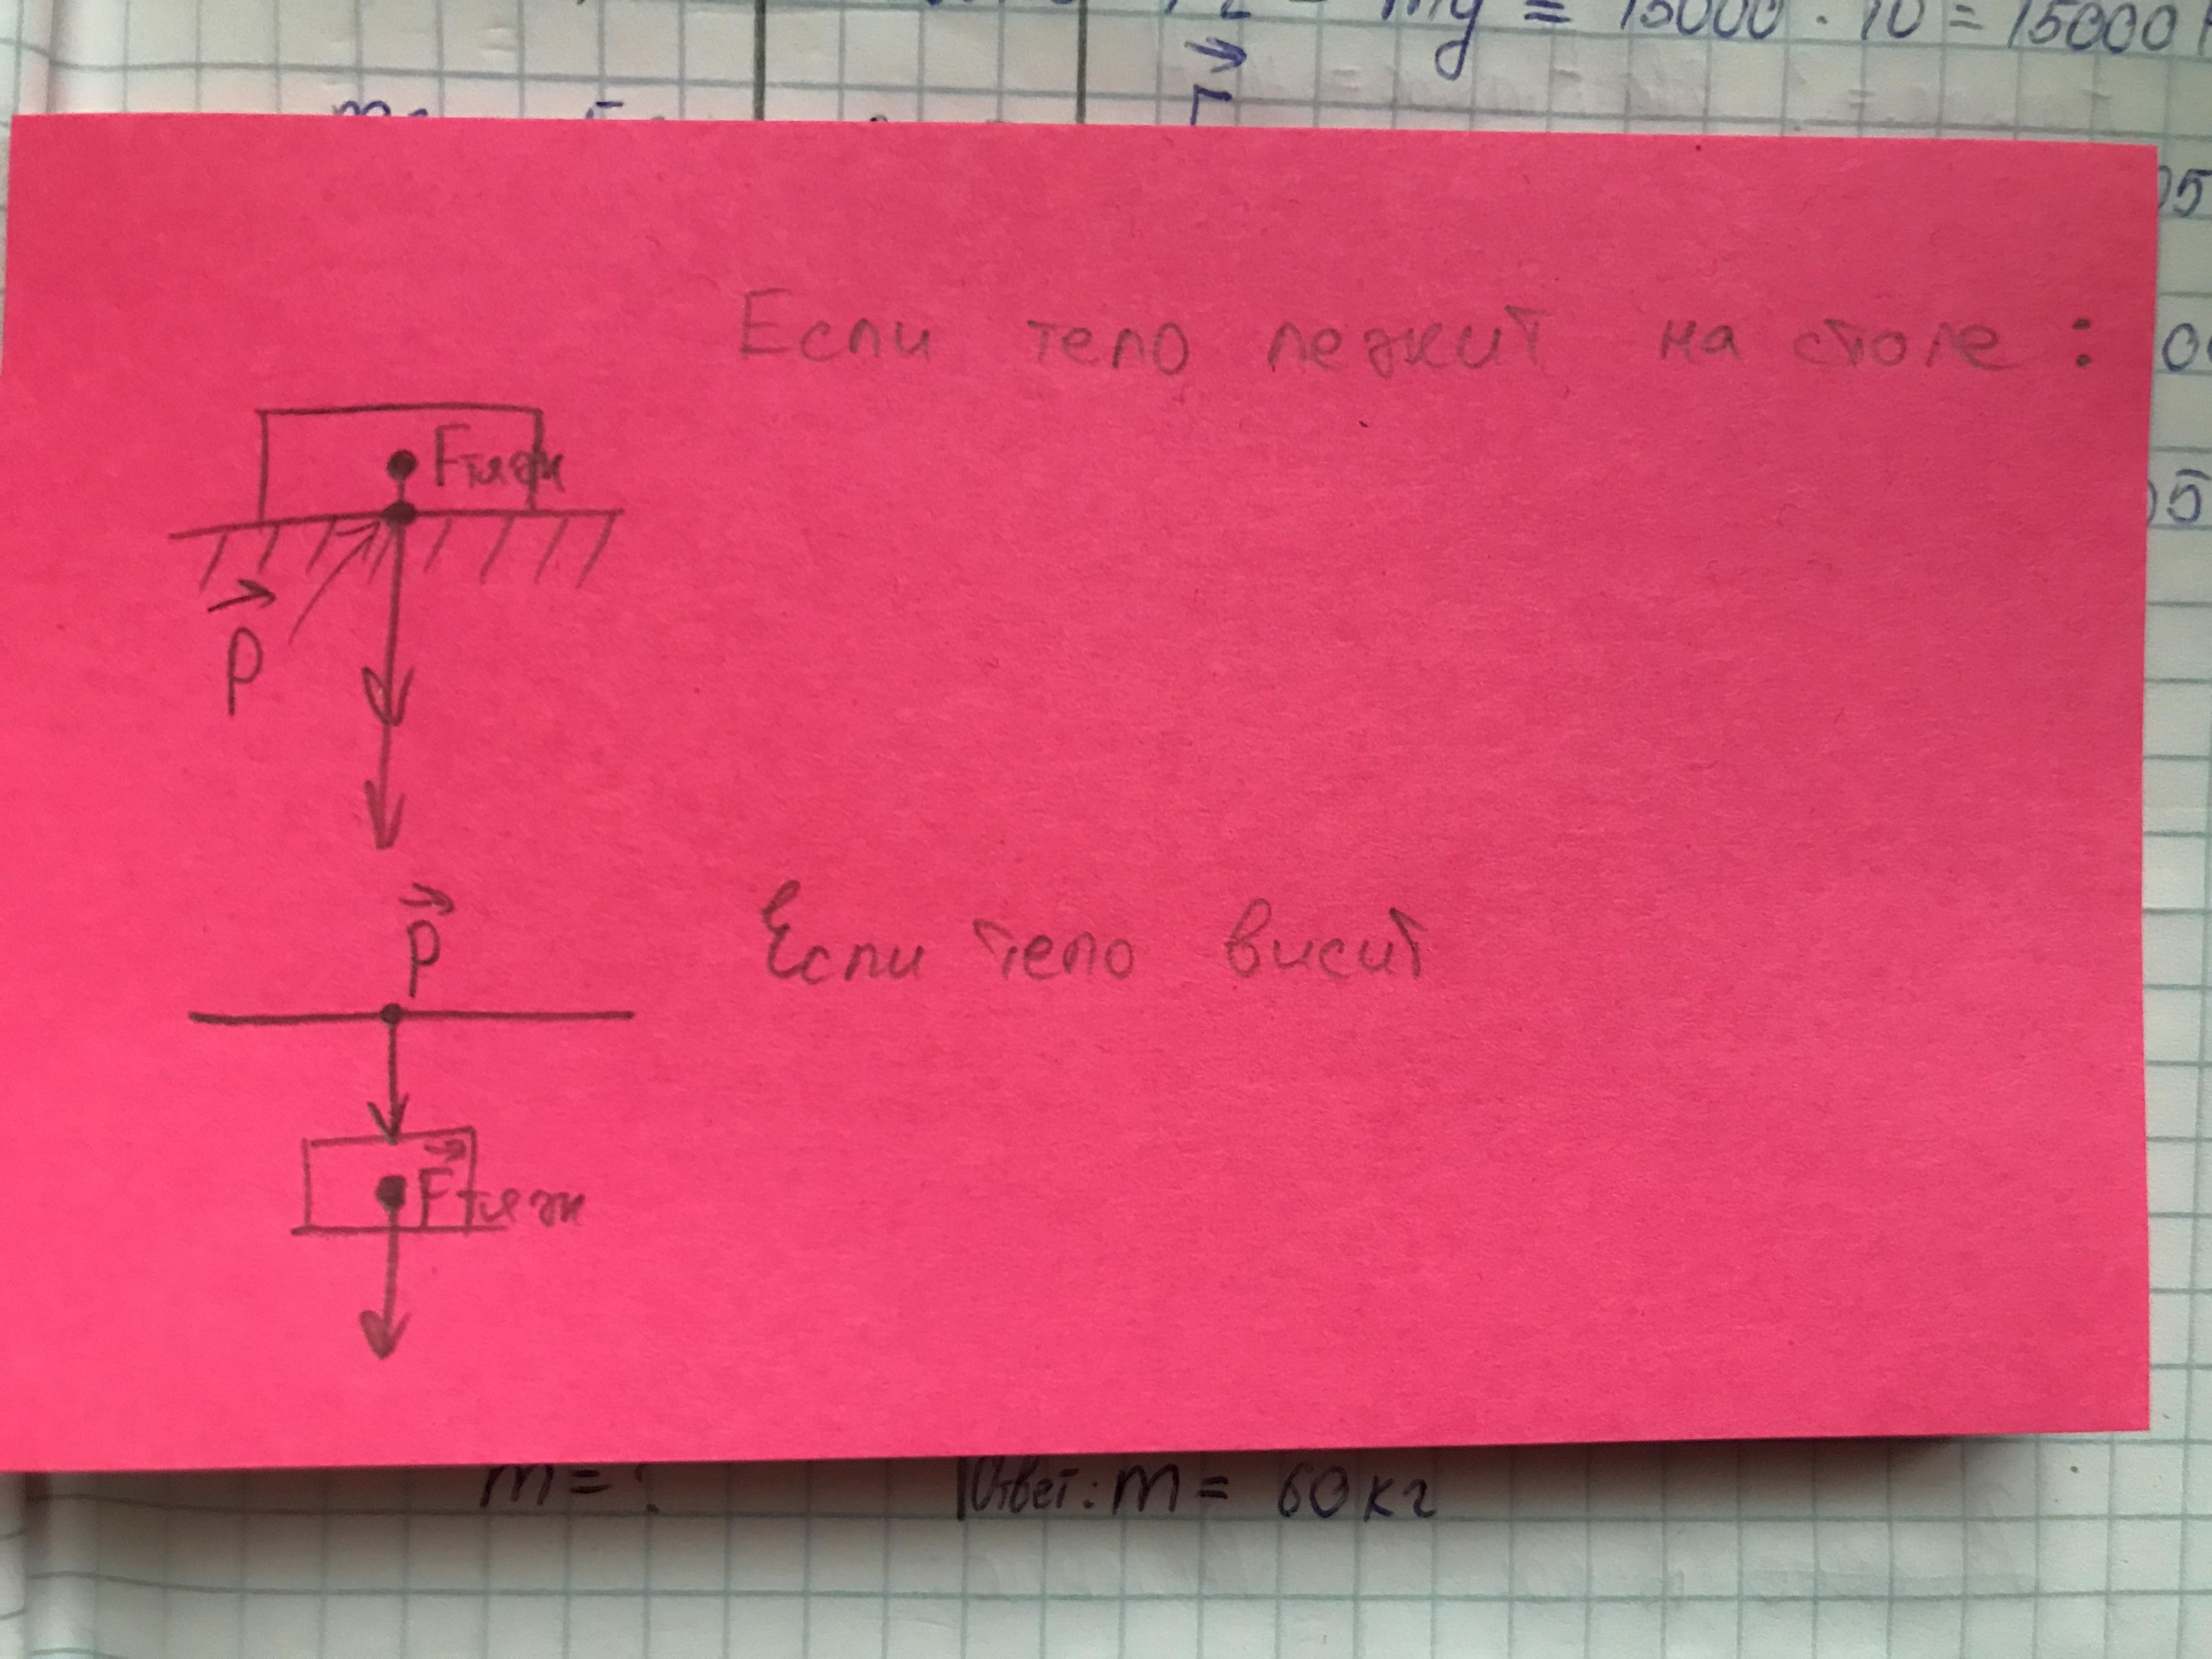 mg = 15000 · 10 = 15000
Если тело лежит на столе :
Fтяж
P
P
Если тело висит
Fтяж
m = ?
Ответ: m = 60 кг